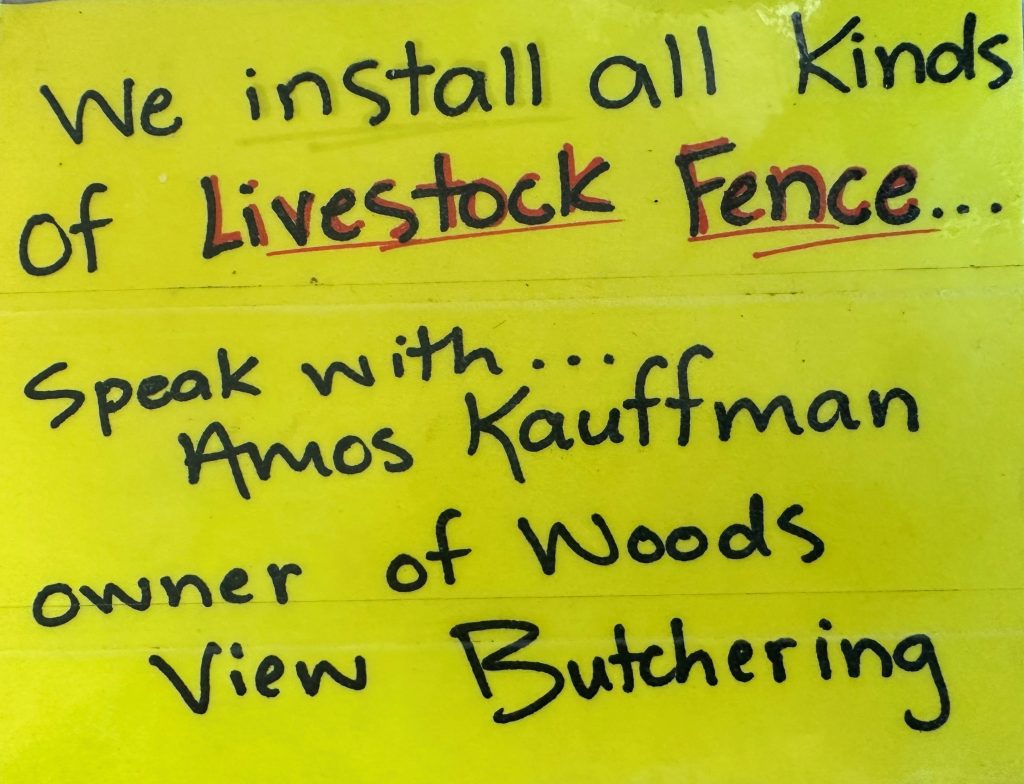 We install all Kinds
of Livestock Fence...
Speak with...
Amos Kauffman
owner of Woods
View Butchering